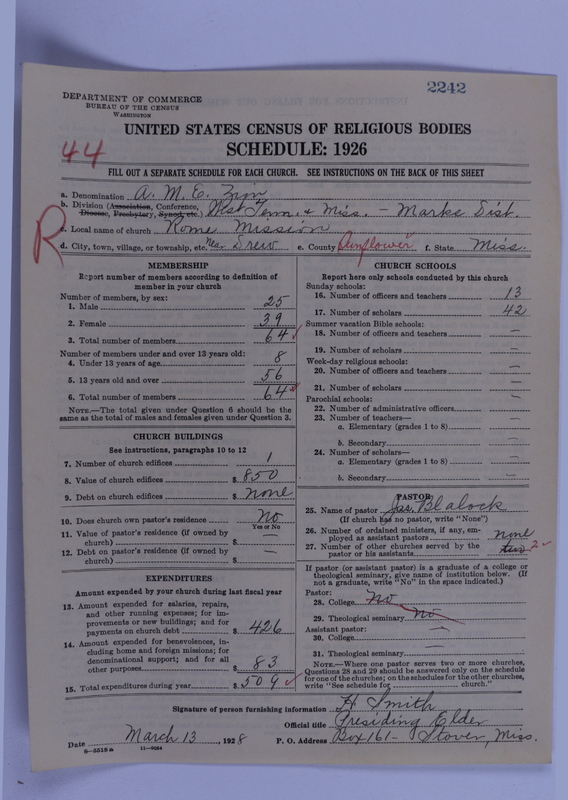 2242
DEPARTMENT OF COMMERCE
BUREAU OF THE CENSUS
WASHINGTON
UNITED STATES CENSUS OF RELIGIOUS BODIES
SCHEDULE: 1926
44
FILL OUT A SEPARATE SCHEDULE FOR EACH CHURCH. SEE INSTRUCTIONS ON THE BACK OF THIS SHEET
a. Denomination A. M. E. Zion
b. Division (Association, Conference, Diocese, Presbytery, Synod, etc.) West Tenn. & Miss. - Marks Dist.
R
c. Local name of church Rome Mission
d. City, town, village, or township, etc. Near Drew e. County Sunflower f. State Miss.
MEMBERSHIP
Report number of members according to definition of
member in your church
Number of members, by sex:
1. Male 25
2. Female 39
3. Total number of members 64
Number of members under and over 13 years old:
4. Under 13 years of age 8
5. 13 years old and over 56
6. Total number of members 64
NOTE.—The total given under Question 6 should be the
same as the total of males and females given under Question 3.
CHURCH BUILDINGS
See instructions, paragraphs 10 to 12
7. Number of church edifices 1
8. Value of church edifices $ 850
9. Debt on church edifices $ none
10. Does church own pastor's residence No
Yes or No
11. Value of pastor's residence (if owned by
church) $ —
12. Debt on pastor's residence (if owned by
church) $ —
EXPENDITURES
Amount expended by your church during last fiscal year
13. Amount expended for salaries, repairs,
and other running expenses; for im-
provements or new buildings; and for
payments on church debt $ 426
14. Amount expended for benevolences, in-
cluding home and foreign missions; for
denominational support; and for all
other purposes $ 83
15. Total expenditures during year $ 509
CHURCH SCHOOLS
Report here only schools conducted by this church
Sunday schools:
16. Number of officers and teachers 13
17. Number of scholars 42
Summer vacation Bible schools:
18. Number of officers and teachers —
19. Number of scholars —
Week-day religious schools:
20. Number of officers and teachers —
21. Number of scholars —
Parochial schools:
22. Number of administrative officers —
23. Number of teachers—
a. Elementary (grades 1 to 8) —
b. Secondary —
24. Number of scholars—
a. Elementary (grades 1 to 8) —
b. Secondary —
PASTOR
25. Name of pastor Jas. Blalock
(If church has no pastor, write "None")
26. Number of ordained ministers, if any, em-
ployed as assistant pastors none
27. Number of other churches served by the
pastor or his assistants two 2
If pastor (or assistant pastor) is a graduate of a college or
theological seminary, give name of institution below. (If
not a graduate, write "No" in the space indicated.)
Pastor:
28. College No
29. Theological seminary No
Assistant pastor:
30. College —
31. Theological seminary —
NOTE.—Where one pastor serves two or more churches,
Questions 28 and 29 should be answered only on the schedule
for one of the churches; on the schedules for the other churches,
write "See schedule for ___ church."
Signature of person furnishing information H Smith
Official title Presiding Elder
Date March 13, 1928 P. O. Address Box 161 - Stover, Miss.
8-5518a 11-9064